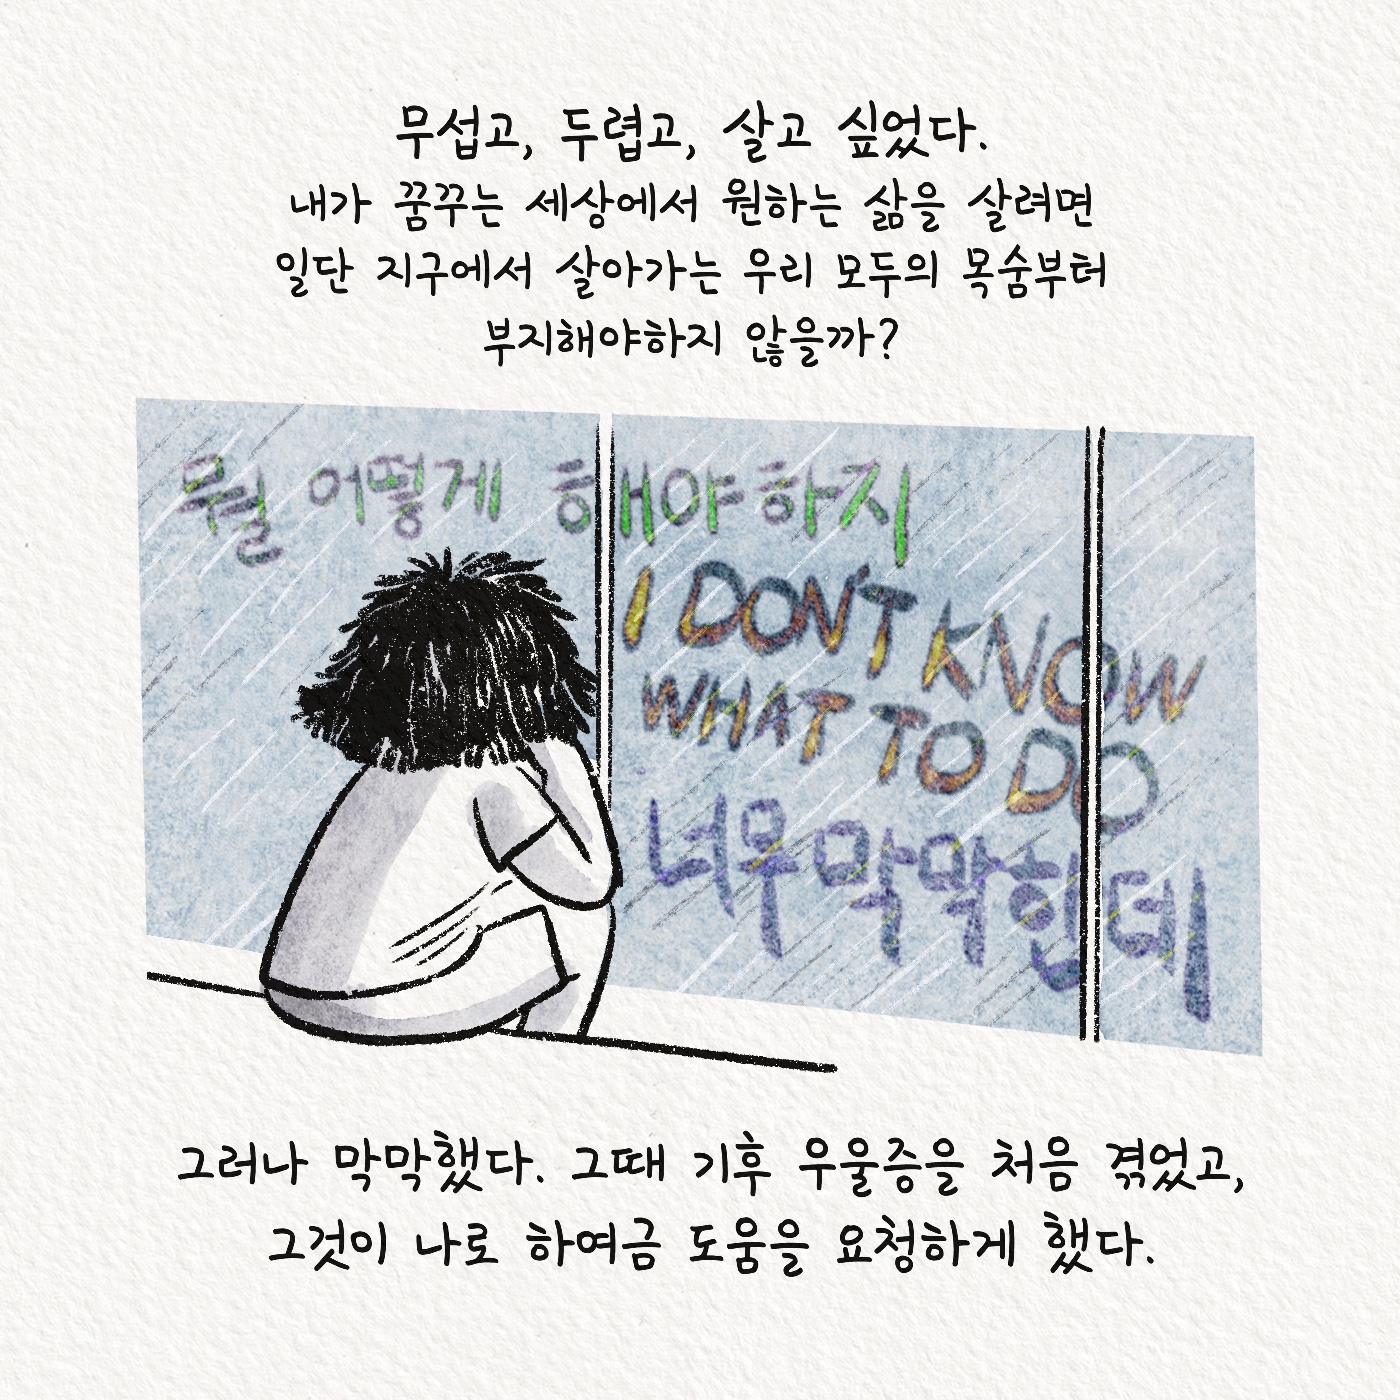 무섭고, 두렵고, 살고 싶었다.
내가 꿈꾸는 세상에서 원하는 삶을 살려면
일단 지구에서 살아가는 우리 모두의 목숨부터
부지해야하지 않을까?
뭘 어떻게 해야하지
I DON'T KNOW
WHAT TO DO
너무막막한데
그러나 막막했다. 그때 기후 우울증을 처음 겪었고,
그것이 나로 하여금 도움을 요청하게 했다.